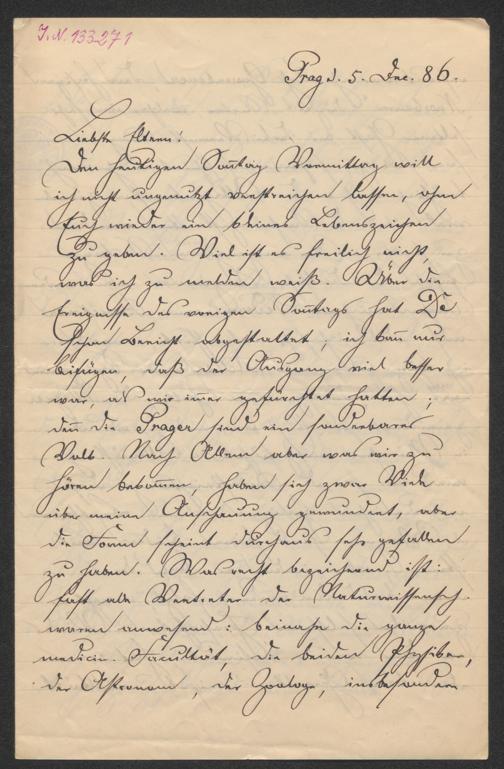 J. N. 133.271
Prag d. 5. Dec. 86.
Liebste Eltern!
Den heutigen Soñtag Vormittag will
ich nicht ungenutzt verstreichen lassen, ohne
Euch wieder ein kleines Lebenszeichen
zu geben. Viel ist es freilich nicht,
was ich zu melden weiß. Über die
Ereignisse des vorigen Soñtags hat
schon Bericht abgestattet; ich kañ nur
beifügen, daß der Ausgang viel besser
war, als wir im̄er gefürchtet hatten;
deñ die Prager sind ein sonderbares
Volk. Nach Allem aber was wir zu
hören bekom̄en, haben sich zwar Viele
über meine Anschauung gewundert, aber
die Form scheint durchaus sehr gefallen
zu haben. Was recht bezeichnend ist:
fast alle Vertreter der Naturwissensch.
waren anwesend: beinahe die ganze
medicin. Facultät, die beiden Physiker,
der Astronom, der Zoologe, insbesondere